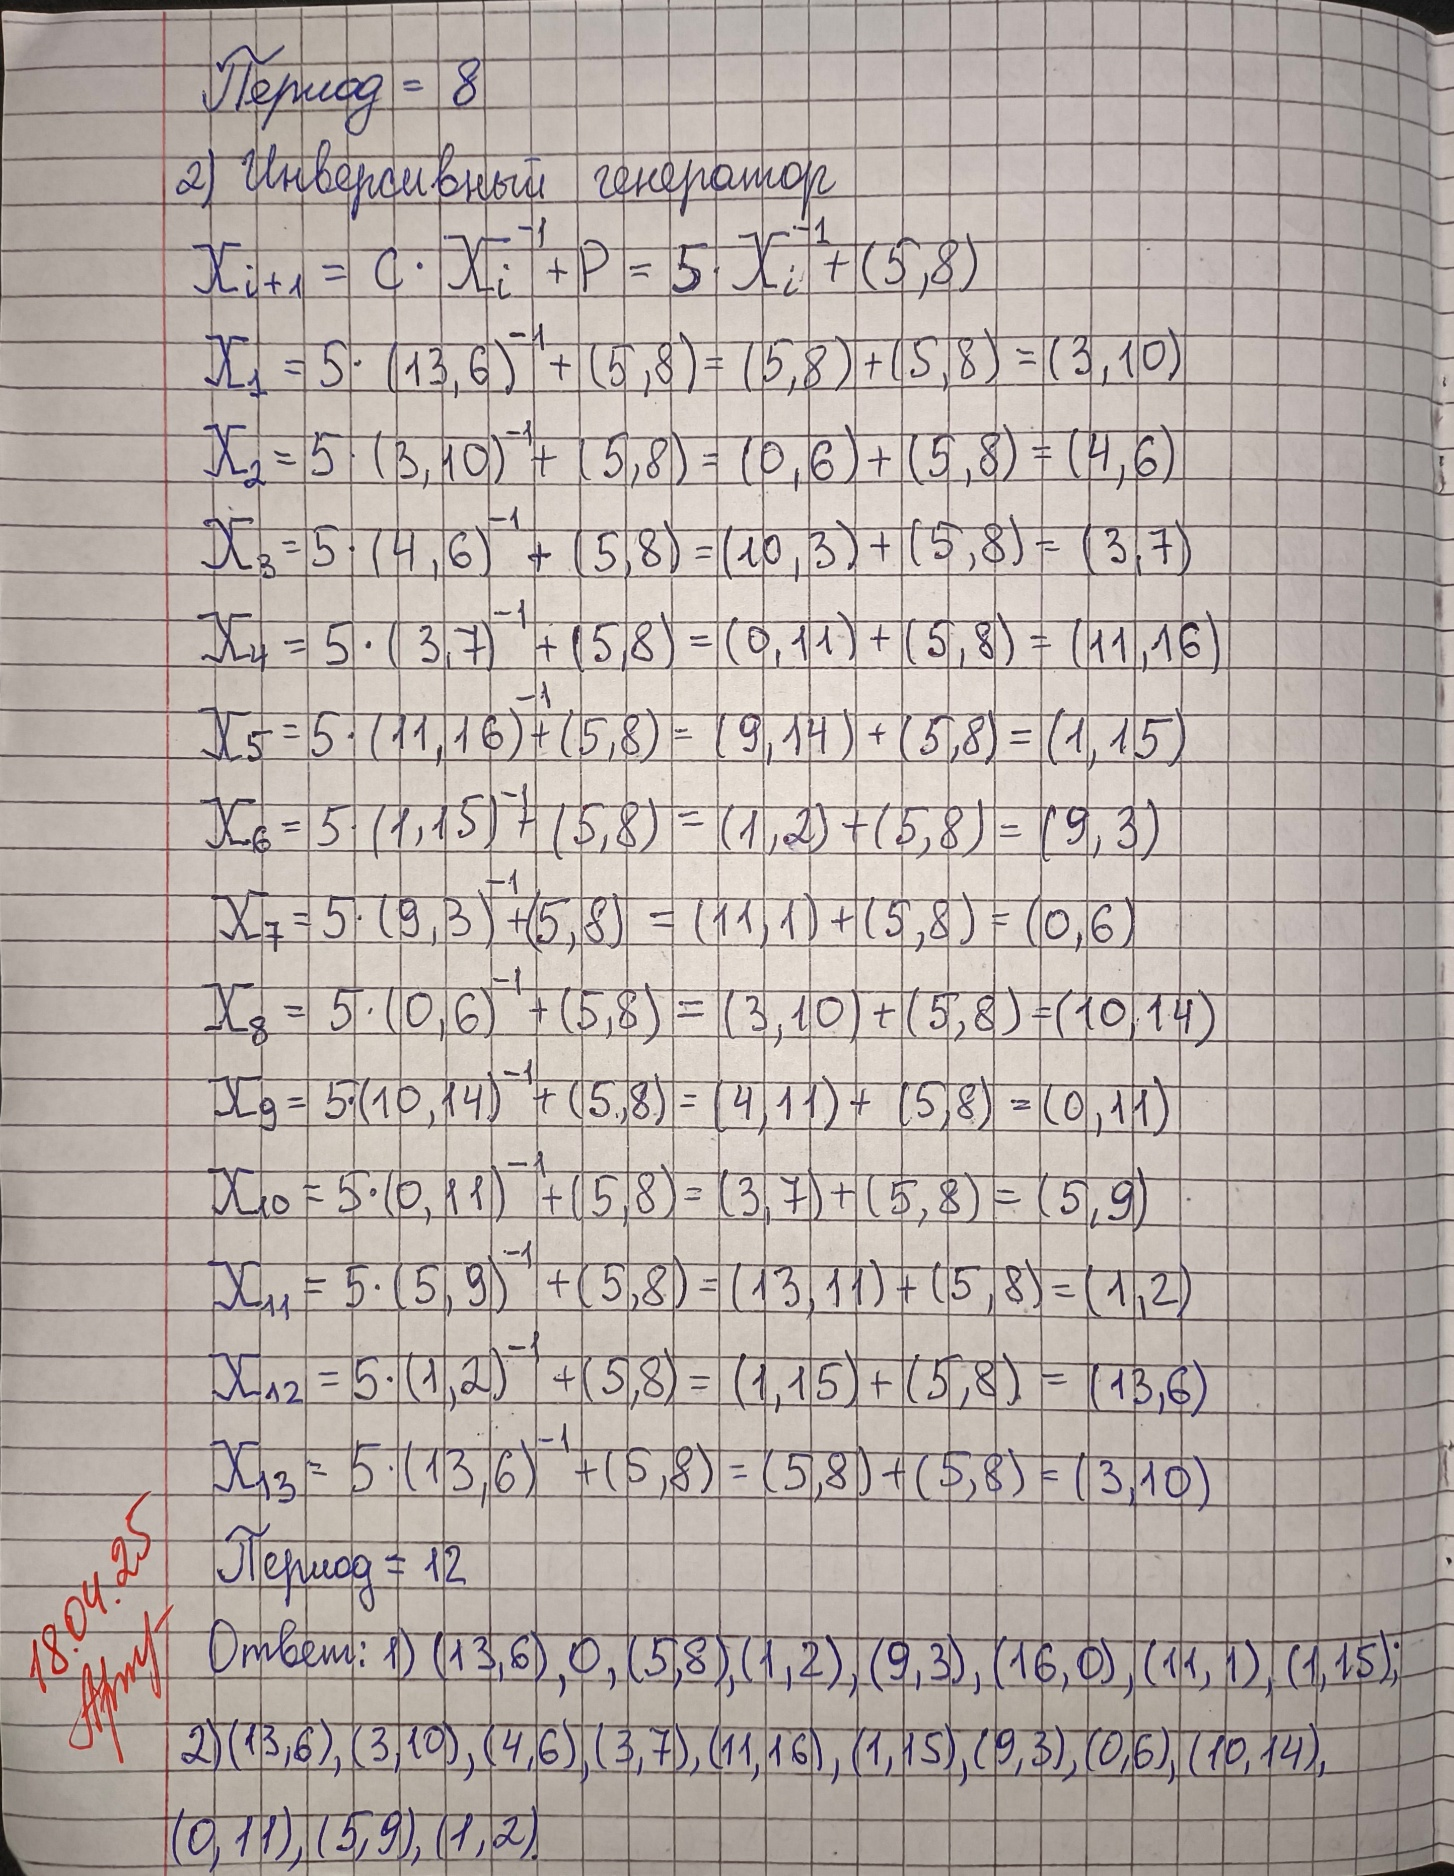 Период = 8
2) Инверсивный генератор
Xᵢ₊₁ = C · Xᵢ⁻¹ + P = 5 · Xᵢ⁻¹ + (5,8)
X₁ = 5 · (13,6)⁻¹ + (5,8) = (5,8) + (5,8) = (3,10)
X₂ = 5 · (3,10)⁻¹ + (5,8) = (0,6) + (5,8) = (4,6)
X₃ = 5 · (4,6)⁻¹ + (5,8) = (10,3) + (5,8) = (3,7)
X₄ = 5 · (3,7)⁻¹ + (5,8) = (0,11) + (5,8) = (11,16)
X₅ = 5 · (11,16)⁻¹ + (5,8) = (9,14) + (5,8) = (1,15)
X₆ = 5 · (1,15)⁻¹ + (5,8) = (1,2) + (5,8) = (9,3)
X₇ = 5 · (9,3)⁻¹ + (5,8) = (11,1) + (5,8) = (0,6)
X₈ = 5 · (0,6)⁻¹ + (5,8) = (3,10) + (5,8) = (10,14)
X₉ = 5 · (10,14)⁻¹ + (5,8) = (4,11) + (5,8) = (0,11)
X₁₀ = 5 · (0,11)⁻¹ + (5,8) = (3,7) + (5,8) = (5,9)
X₁₁ = 5 · (5,9)⁻¹ + (5,8) = (13,11) + (5,8) = (1,2)
X₁₂ = 5 · (1,2)⁻¹ + (5,8) = (1,15) + (5,8) = (13,6)
X₁₃ = 5 · (13,6)⁻¹ + (5,8) = (5,8) + (5,8) = (3,10)
Период = 12
18.04.25
Ответ: 1) (13,6), 0, (5,8), (1,2), (9,3), (16,0), (11,1), (1,15);
2) (13,6), (3,10), (4,6), (3,7), (11,16), (1,15), (9,3), (0,6), (10,14),
(0,11), (5,9), (1,2).